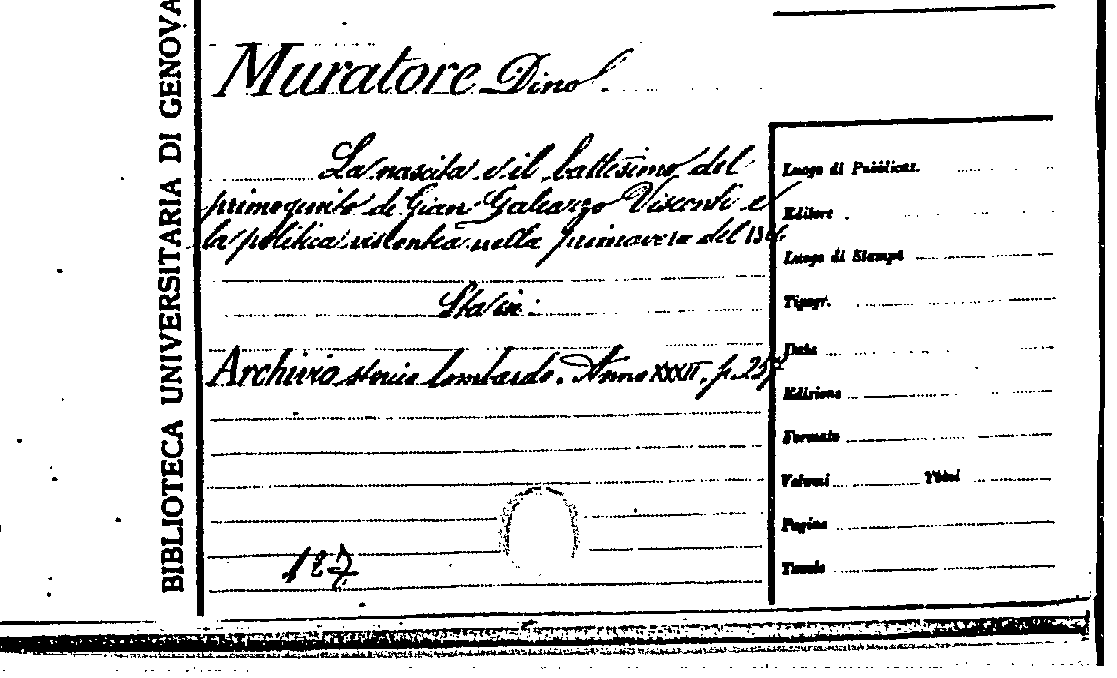 BIBLIOTECA UNIVERSITARIA DI GENOVA
Muratore Dino
La nascita e il battesimo del
primogenito di Gian Galeazzo Visconti e
la politica viscontea nella primavera del 1366
Sta in:
Archivio storico lombardo. Anno XXXII. p. 257
127
Luogo di Pubblicaz.
Editore
Luogo di Stampa
Tipogr.
Data
Edizione
Formato
Volumi
Pagine
Tavole